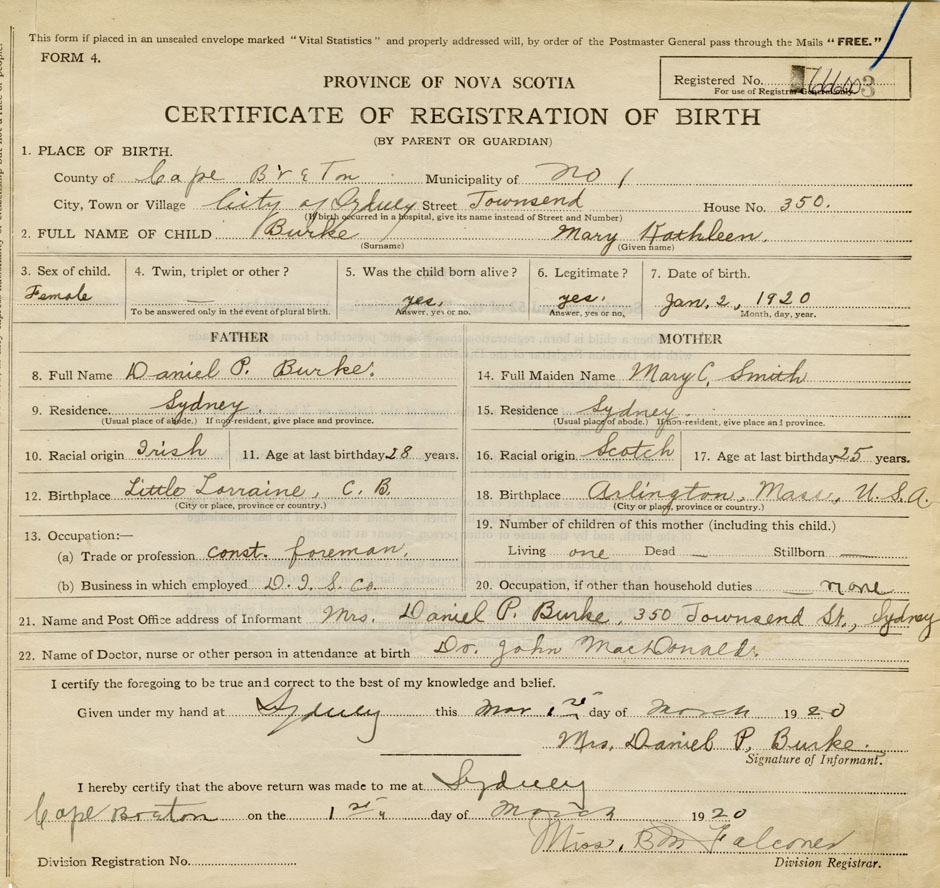 This form if placed in an unsealed envelope marked "Vital Statistics" and properly addressed will, by order of the Postmaster General pass through the Mails "FREE."
FORM 4.
PROVINCE OF NOVA SCOTIA
Registered No.
For use of Registrar General only.
CERTIFICATE OF REGISTRATION OF BIRTH
(BY PARENT OR GUARDIAN)
1. PLACE OF BIRTH.
County of Cape Breton Municipality of No 1
City, Town or Village City of Sydney Street Townsend House No. 350.
(If birth occurred in a hospital, give its name instead of Street and Number)
2. FULL NAME OF CHILD Burke Mary Kathleen.
(Surname) (Given name)
3. Sex of child. 4. Twin, triplet or other? 5. Was the child born alive? 6. Legitimate? 7. Date of birth.
Female — yes. yes. Jan. 2, 1920
To be answered only in the event of plural birth. Answer, yes or no. Answer, yes or no. Month, day, year.
FATHER MOTHER
8. Full Name Daniel P. Burke. 14. Full Maiden Name Mary C. Smith
9. Residence. Sydney. 15. Residence Sydney.
(Usual place of abode.) If non-resident, give place and province. (Usual place of abode.) If non-resident, give place and province.
10. Racial origin Irish 11. Age at last birthday 28 years. 16. Racial origin Scotch 17. Age at last birthday 25 years.
12. Birthplace Little Lorraine, C. B. 18. Birthplace Arlington, Mass., U.S.A.
(City or place, province or country.) (City or place, province or country.)
13. Occupation:— 19. Number of children of this mother (including this child.)
(a) Trade or profession const. foreman. Living one Dead — Stillborn —
(b) Business in which employed D. I. S. Co. 20. Occupation, if other than household duties none
21. Name and Post Office address of Informant Mrs. Daniel P. Burke, 350 Townsend St., Sydney
22. Name of Doctor, nurse or other person in attendance at birth Dr. John MacDonald.
I certify the foregoing to be true and correct to the best of my knowledge and belief.
Given under my hand at Sydney this Mar 1st day of March 1920
Mrs. Daniel P. Burke.
Signature of Informant.
I hereby certify that the above return was made to me at Sydney
Cape Breton on the 1st day of March 1920
Miss. B M Falconer
Division Registration No. Division Registrar.